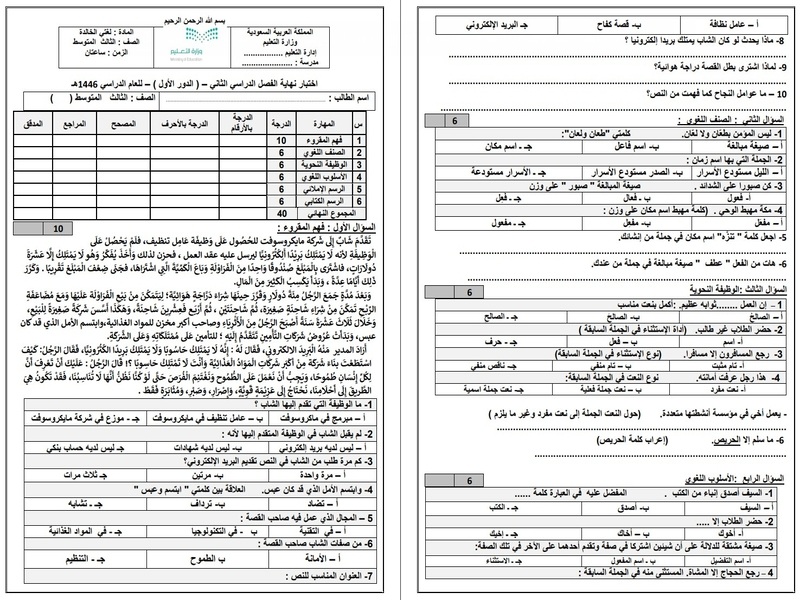 بسم الله الرحمن الرحيم
المملكة العربية السعودية
وزارة التعليم
إدارة التعليم ..................
مدرسة : .......................
وزارة التعليم
Ministry of Education
المادة : لغتي الخالدة
الصف : الثالث المتوسط
الزمن : ساعتان
اختبار نهاية الفصل الدراسي الثاني – ( الدور الأول ) – للعام الدراسي 1446هـ
اسم الطالب : ....................... الصف : الثالث المتوسط ( )
س المهارة الدرجة الدرجة بالأرقام الدرجة بالأحرف المصحح المراجع المدقق
1 فهم المقروء 10
2 الصنف اللغوي 6
3 الوظيفة النحوية 6
4 الأسلوب اللغوي 6
5 الرسم الإملائي 6
6 الرسم الكتابي 6
المجموع النهائي 40
السؤال الأول : فهم المقروء : 10
تَقَدَّمَ شَابٌّ إِلَى شَرِكَةِ مايكروسوفت للحُصُولِ عَلَى وَظِيفَةِ عَامِلِ تنظيف، فَلَمْ يَحْصُلْ عَلَى
الوَظِيفَةِ لأنه لَا يَمْتَلِكُ بَرِيْدًا إِلِكْتُرُونِيًّا ليرسل عليه عقد العمل ، فحزن لذلك وَأَخَذَ يُفَكِّرُ وهو لَا يَمْتَلِكُ إِلَّا عَشَرَةَ
دُولَارَاتٍ، فاشترى بالمَبْلَغِ صُنْدُوقًا وَاحِدًا مِنَ الْفَرَاوْلَةِ وَبَاعَ الْكَمِّيَّةَ الَّتِي اشْتَرَاهَا، فَجَنَى ضِعْفَ المَبْلَغِ تَقْرِيبًا . وَكَرَّرَ
ذلك أيَّامًا عِدَّةً ، وَبَدَأَ يَكْسِبُ الْكَثِيرَ مِنَ الْمَالِ.
وَبَعْدَ مُدَّةٍ جَمَعَ الرَّجُلُ مِئَةَ دولارٍ وَقَرَّرَ حِينَهَا شِرَاءَ دَرَّاجَةٍ هَوَائِيَّةٍ؛ لِيَتَمَكَّنَ مِنْ بَيْعِ الْفَرَاوْلَةِ عَلَيْهَا وَمَعَ مُضَاعَفَةِ
الرِّبْحِ تَمَكَّنَ مِنْ شِرَاءِ شَاحِنَةٍ صَغِيرَةٍ، ثُمَّ شَاحِنَتَيْنِ ، ثُمَّ أَرْبَعٍ فَعِشْرِينَ شَاحِنَةً، وَهَكَذَا أَسَّسَ شَرِكَةً صَغِيرَةً لِلْبَيْعِ،
وَخِلَالَ ثَلَاثَ عَشْرَةَ سَنَةً أَصْبَحَ الرَّجُلُ مِنَ الْأَثْرِيَاءِ وصاحب أكبر مخزن للمواد الغذائية،وابتسم الأمل الذي قد كان
عبس، وَبَدَأَتْ عُرُوضُ شَرِكَاتِ التَّأْمِينِ تَتَقَدَّمُ إِلَيْهِ ؛ للتأمين عَلَى مُمْتَلَكَاتِهِ وَعَلَى الشَّرِكَةِ.
أرَادَ المدير مِنْهُ الْبَرِيدَ الإلكتروني، فَقَالَ لَهُ : إِنَّهُ لَا يَمْتَلِكُ حَاسُوبًا وَلَا يَمْتَلِكُ بَرِيدًا الكْتُرُونِيًّا، فَقَالَ الرَّجُلُ: كَيْفَ
اسْتَطَعْتَ بِنَاءَ شَرِكَةٍ مِنْ أَكْبَرِ شَرِكَاتِ المَوَادِّ الغذائيَّةِ وَأَنْتَ لَا تَمْتَلِكُ حَاسُوبًا ؟! قَالَ الرجُلُ : عَلَيْكَ أَنْ تَعْرِفَ أَنَّ
لِكُلِّ إِنْسَانٍ طُمُوحًا، وَيَجِبُ أَنْ نَعْمَلَ عَلَى الطُّمُوحِ وَنَغْتَنِمَ الْفُرَصَ حَتَّى لَوْ كُنَّا نَظُنُّ أَنَّهَا لَا تُنَاسِبُنَا، فَقَدْ تَكُونُ هِيَ
الطَّرِيقَ إِلَى أَحْلَامِنَا، نَحْتَاجُ إِلَى عَزِيمَةٍ قَوِيَّةٍ، وَإِصْرَارٍ، وَصَبْرٍ، وَمُثَابَرَةٍ فَقَط .
1- ما الوظيفة التي تقدم إليها الشاب ؟
أ – مبرمج في ماكروسوفت ب – عامل تنظيف في مايكروسوفت جـ - موزع في شركة مايكروسوفت
2- لم يقبل الشاب في الوظيفة المتقدم إليها لأنه :
أ – ليس لديه بريد إلكتروني ب- ليس لديه شهادات جـ ليس لديه حساب بنكي
3- كم مرة طلب من الشاب في النص تقديم البريد الإلكتروني؟
أ – مرة واحدة ب- مرتين جـ ثلاث مرات
4- وابتسم الأمل الذي قد كان عبس. العلاقة بين كلمتي " ابتسم وعبس "
أ – تضاد ب- ترادف جـ - تشابه
5 – المجال الذي عمل فيه صاحب القصة :
أ – في التقنية ب - في التكنولوجيا جـ - في المواد الغذائية
6- من صفات الشاب صاحب القصة :
أ – الأمانة ب الطموح جـ - التنظيم
7- العنوان المناسب للنص :
أ – عامل نظافة ب- قصة كفاح جـ البريد الإلكتروني
8- ماذا يحدث لو كان الشاب يمتلك بريدا إلكترونيا ؟
9- لماذا اشترى بطل القصة دراجة هوائية؟
10 – ما عوامل النجاح كما فهمت من النص؟
السؤال الثاني : الصنف اللغوي : 6
1- ليس المؤمن بطعان ولا لعان. كلمتي "طعان ولعان":
أ – صيغة مبالغة ب- اسم فاعل جـ - اسم مكان
2- الجملة التي بها اسم زمان :
أ – الليل مستودع الأسرار ب- الصدر مستودع الأسرار جـ - الأسرار مستودعة
3- كن صبورا على الشدائد . صيغة المبالغة " صبور " على وزن
أ- فعول ب – فعال جـ - فعل
4- مكة مهبط الوحي . (كلمة مهبط اسم مكان على وزن :
أ – مفعل ب – مفعل جـ - مفعول
5- اجعل كلمة " تنزّه" اسم مكان في جملة من إنشائك.
6- هات من الفعل " عطف " صيغة مبالغة في جملة من عندك.
السؤال الثالث :الوظيفة النحوية 6
1 – إن العمل .........ثوابه عظيم. :أكمل بنعت مناسب
أ – الصالحُ ب- الصالحَ جـ - الصالحِ
2- حضر الطلاب غير طالب. (أداة الإستثناء في الجملة السابقة )
أ – اسم ب – فعل جـ - حرف
3- رجع المسافرون إلا مسافرا. (نوع الإستثناء في الجملة السابقة)
أ – تام مثبت ب – تام منفي جـ - ناقص منفي
4- هذا رجل عرفت أمانته. نوع النعت في الجملة السابقة:
أ – نعت مفرد ب – نعت جملة فعلية جـ - نعت جملة اسمية
- يعمل أخي في مؤسسة أنشطتها متعددة. (حول النعت الجملة إلى نعت مفرد وغير ما يلزم )
6- ما سلم إلا الحريص. (إعراب كلمة الحريص)
السؤال الرابع :الأسلوب اللغوي 6
1- السيف أصدق إنباء من الكتب . المفضل عليه في العبارة كلمة ......
أ – السيف ب- أصدق جـ - الكتب
2- حضر الطلاب إلا .....
أ – أخوك ب – أخاك جـ - إخيك
3- صيغة مشتقة للدلالة على أن شيئين اشتركا في صفة وتقدم أحدهما على الآخر في تلك الصفة:
أ – اسم التفضيل ب – اسم المفعول جـ - الاستثناء
4 – رجع الحجاج إلا المشاة. المستثنى منه في الجملة السابقة :